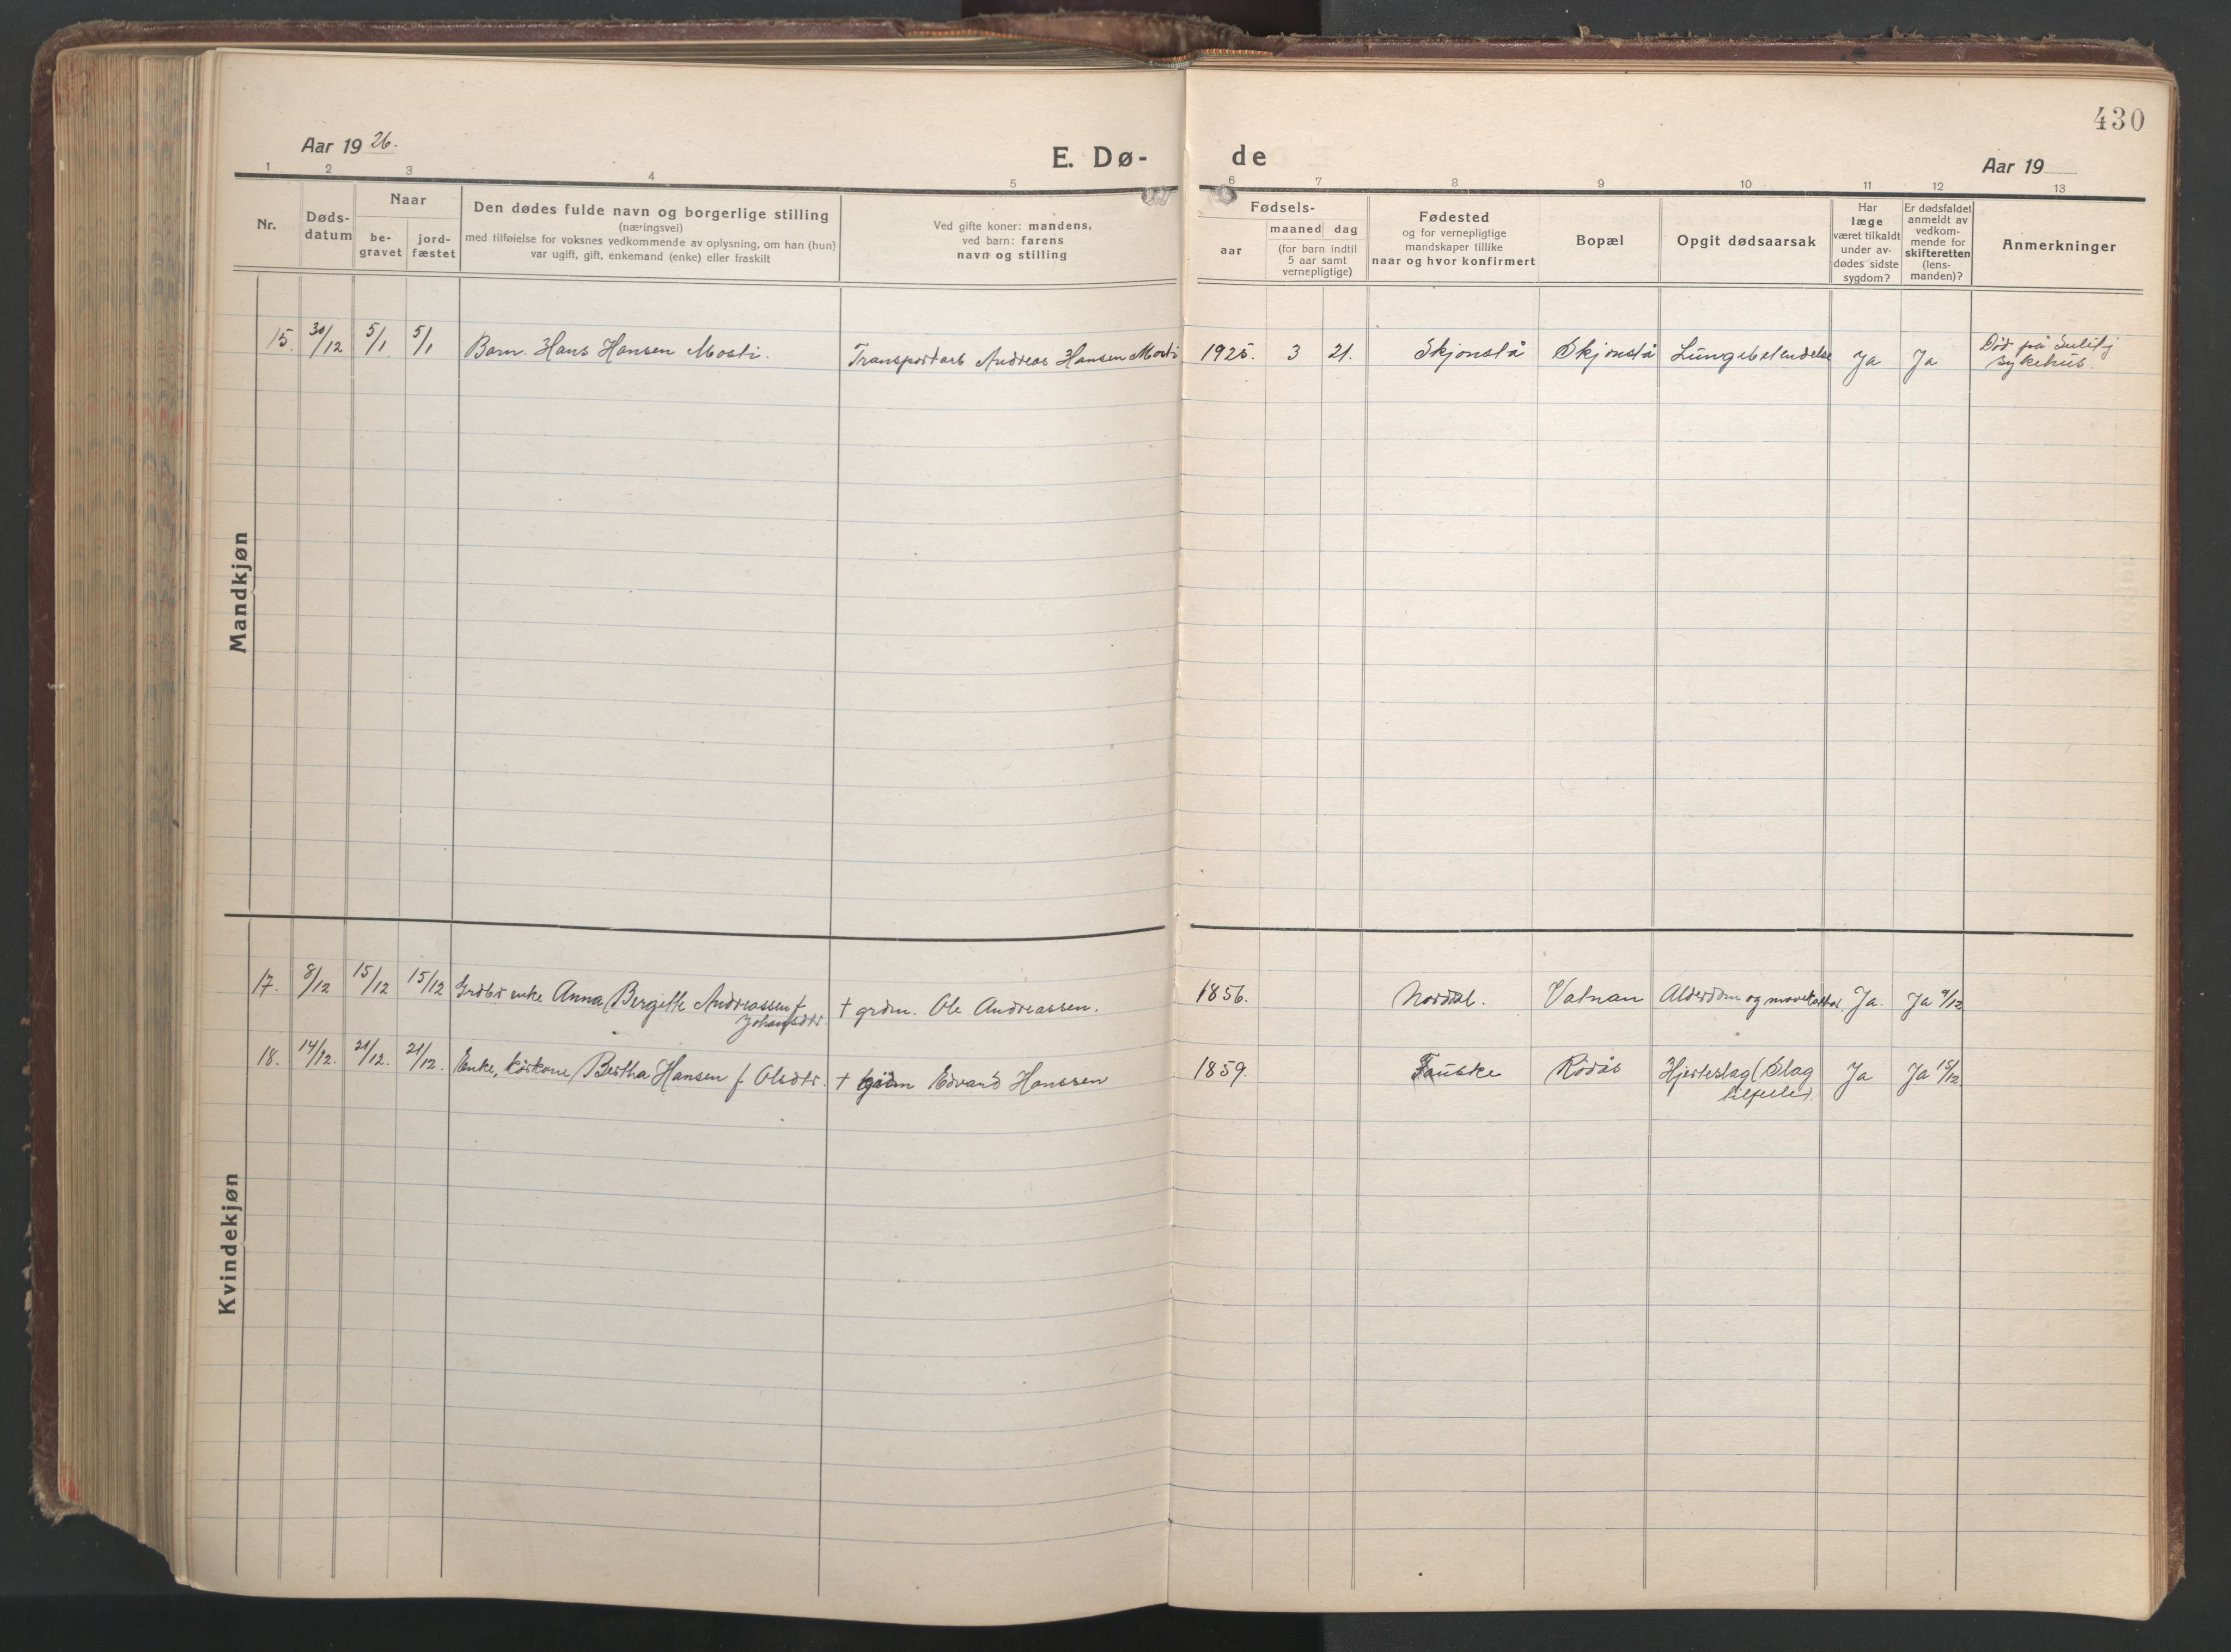 430
Aar 19 26.
E. Dø- de
Aar 19
1 2 3 4 5 6 7 8 9 10 11 12 13
Nr.
Døds-
datum
Naar
be-
gravet
jord-
fæstet
Den dødes fulde navn og borgerlige stilling
(næringsvei)
med tilføielse for voksnes vedkommende av oplysning, om han (hun)
var ugift, gift, enkemand (enke) eller fraskilt
Ved gifte koner: mandens,
ved barn: farens
navn og stilling
Fødsels-
aar
maaned dag
(for barn indtil
5 aar samt
vernepligtige)
Fødested
og for vernepligtige
mandskaper tillike
naar og hvor konfirmert
Bopæl
Opgit dødsaarsak
Har
læge
været tilkaldt
under av-
dødes sidste
sygdom?
Er dødsfaldet
anmeldt av
vedkom-
mende for
skifteretten
(lens-
manden)?
Anmerkninger
Mandkjøn
15. 30/12 5/1 5/1 Barn. Hans Hansen Mosti. Transportarb Andreas Hansen Mosti 1925. 3 21. Skjonstå Skjonstå Lungebetendelse Ja Ja Död på Sulitj
sykehus.
Kvindekjøn
17. 8/12 15/12 15/12 enke Anna Bergitte Andreassen f
Johansdtr. † grdm. Ole Andreassen. 1856. Nordal. Vatnan Alderdom og Ja. Ja 9/12
18. 14/12. 21/12. 21/12. Enke, Bertha Hansen f. Olsdtr. † Edvard Hanssen 1859. Fauske Rödås Hjerteslag (Slag
tilfelle). Ja Ja 15/12